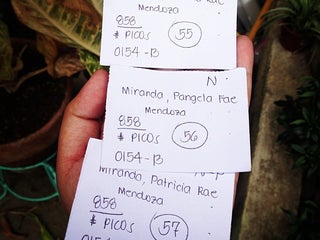 Rae
Mendoza
858
# PICOS
55
0154-B
N.
Miranda, Pangela Rae
Mendoza
858
# PICOS
56
0154-B
Miranda, Patricia Rae
Mendoza
858
# PICOS
57